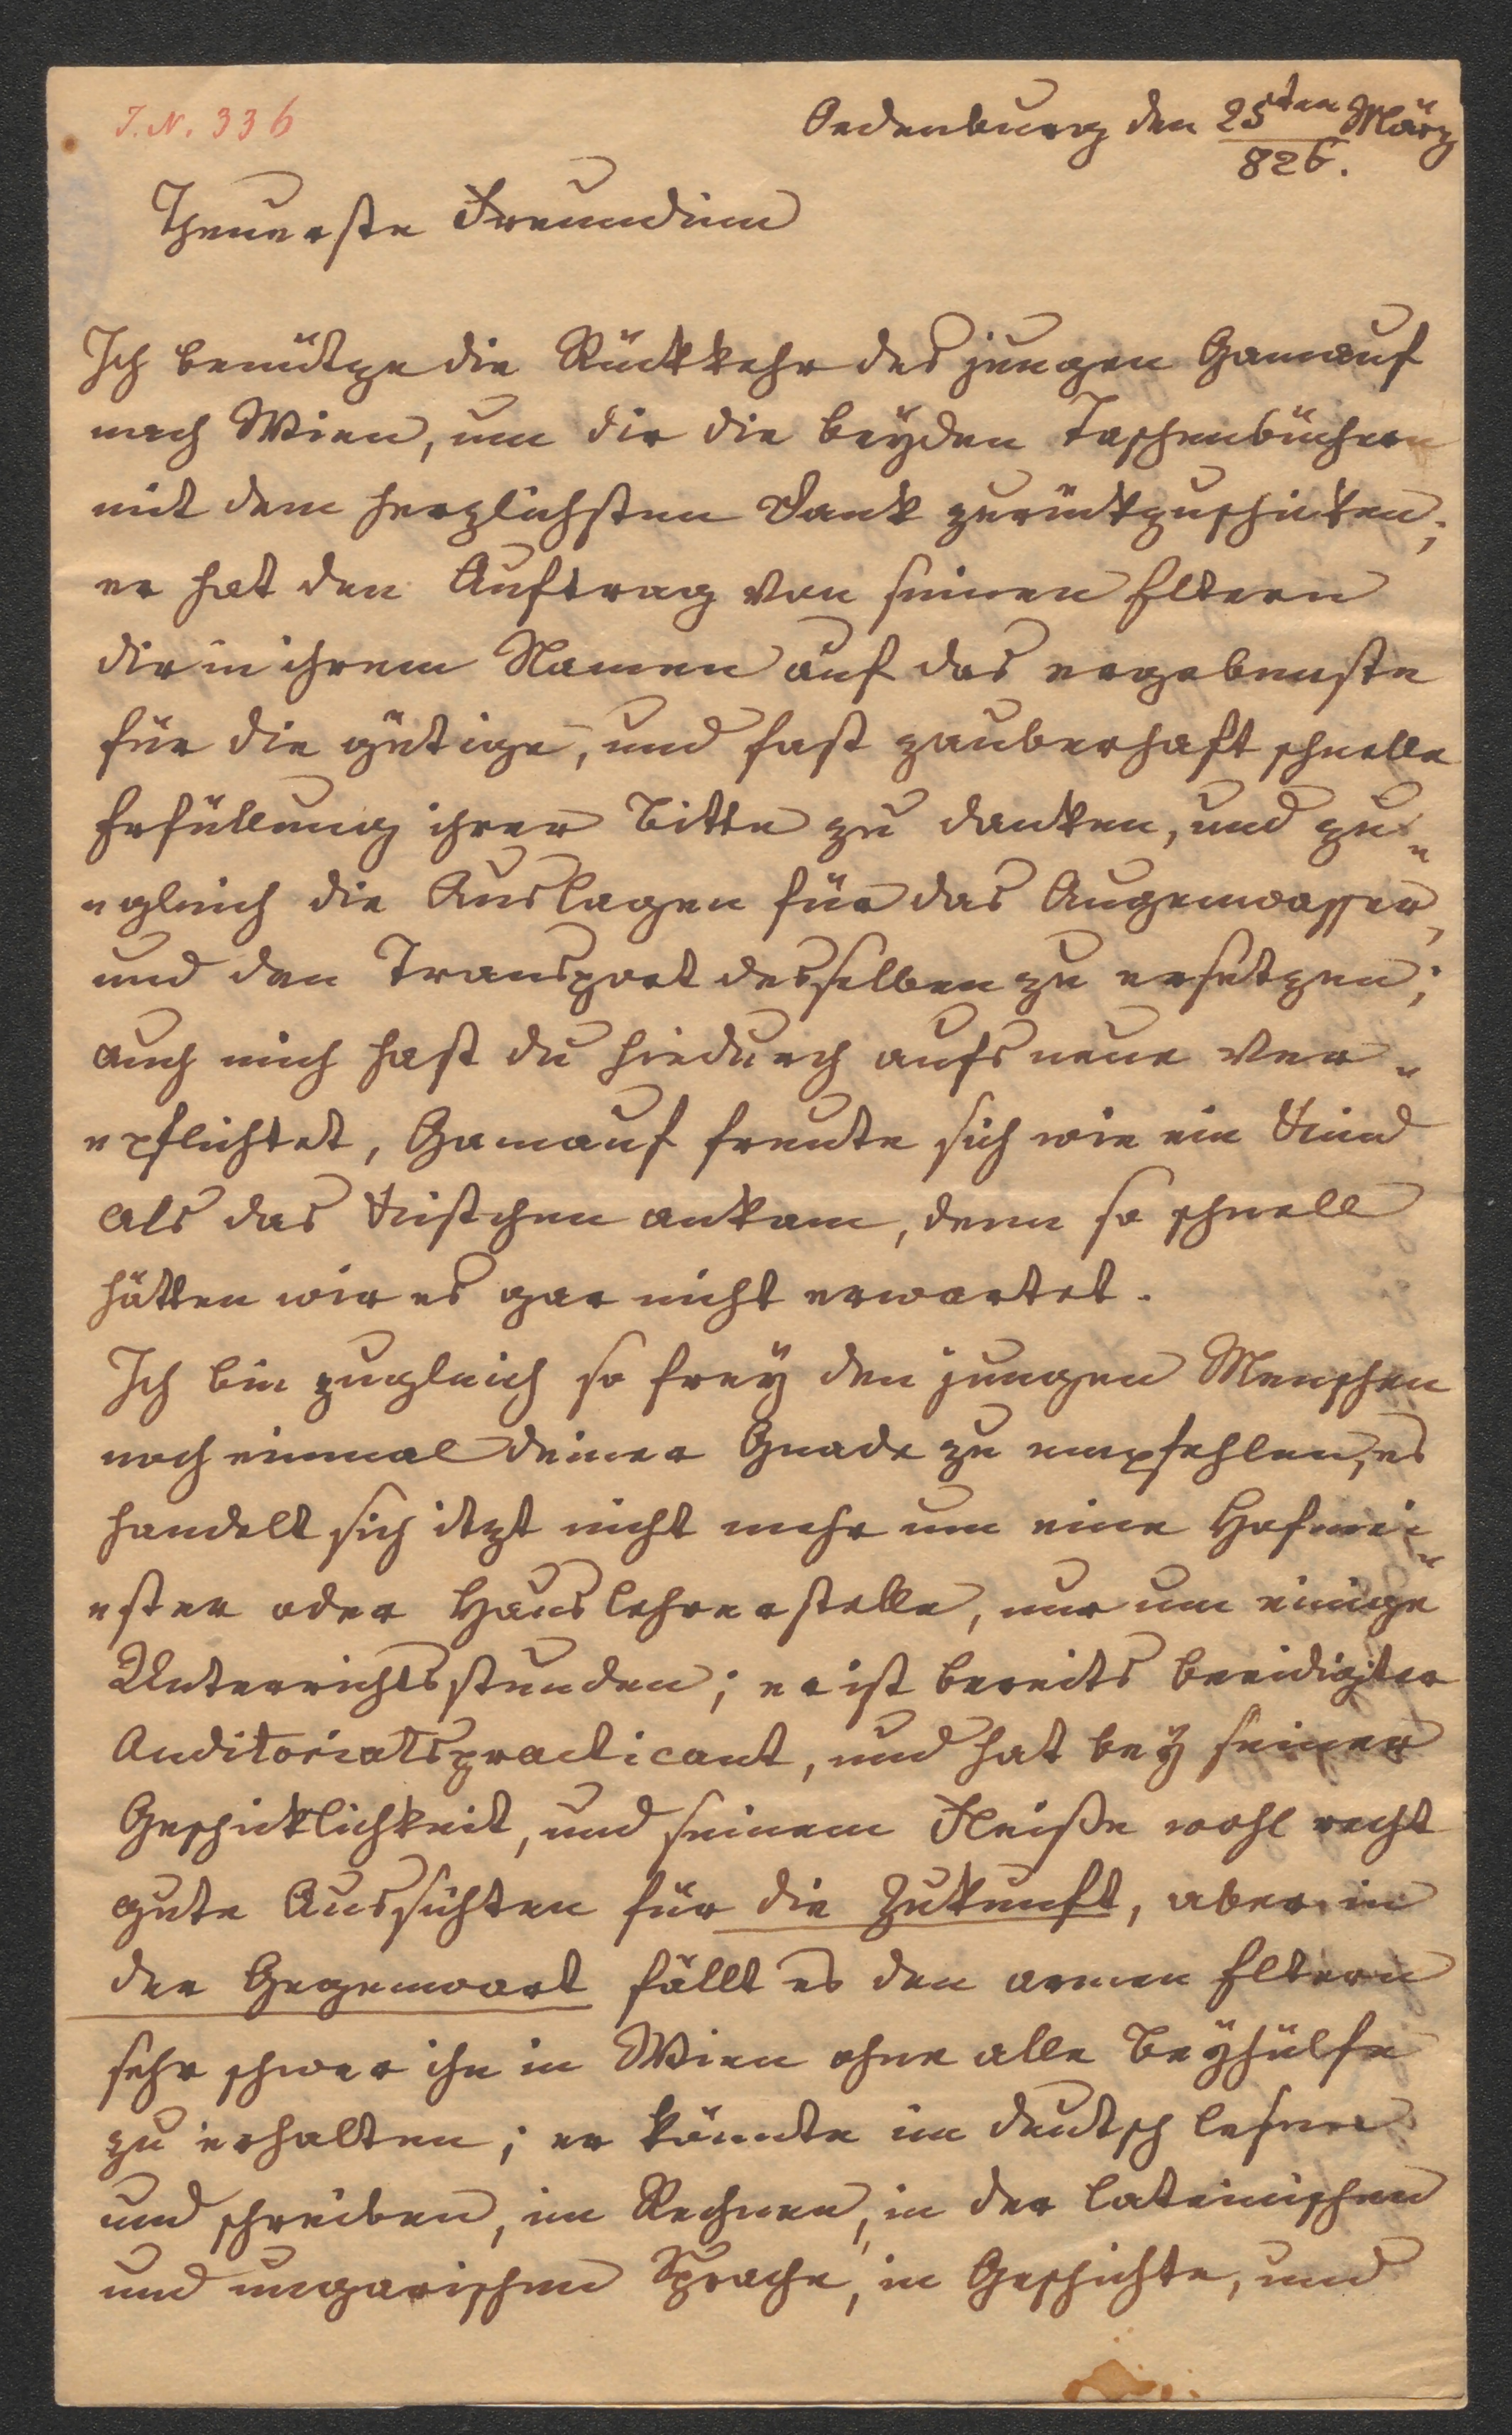 J. N. 336
Oedenburg den 25ten März
826.
Theuerste Freundinn
Ich benütze die Rückkehr des jungen Gamauf
nach Wien, um dir die beyden Taschenbücher
mit dem herzlichsten Dank zurückzuschicken;
er hat den Auftrag von seinen Eltern
dir in ihrem Namen auf das ergebenste
für die gütige, und fast zauberhaft schnelle
Erfüllung ihrer Bitte zu danken, und zu„
„gleich die Auslagen für das Augenwasser,
und den Transport desselben zu ersetzen;
auch mich hast du hiedurch aufs neue ver„
„pflichtet, Gamauf freute sich wie ein Kind
als das Kistchen ankam, denn so schnell
hätten wir es gar nicht erwartet.
Ich bin zugleich so frey den jungen Menschen
noch einmal deiner Gnade zu empfehlen, es
handelt sich itzt nicht mehr um eine Hofmei„
„ster oder Hauslehrerstelle, nur um einige
Unterrichtsstunden; er ist bereits beeidigter
Auditoriatspracticant, und hat bey seiner
Geschicklichkeit, und seinem Fleiße wohl recht
gute Aussichten für die Zukunft, aber in
der Gegenwart fällt es den armen Eltern
sehr schwer ihn in Wien ohne alle Beyhülfe
zu erhalten; er könnte im deutsch lesen
und schreiben, im Rechnen, in der lateinischen
und ungarischen Sprache, in Geschichte, und